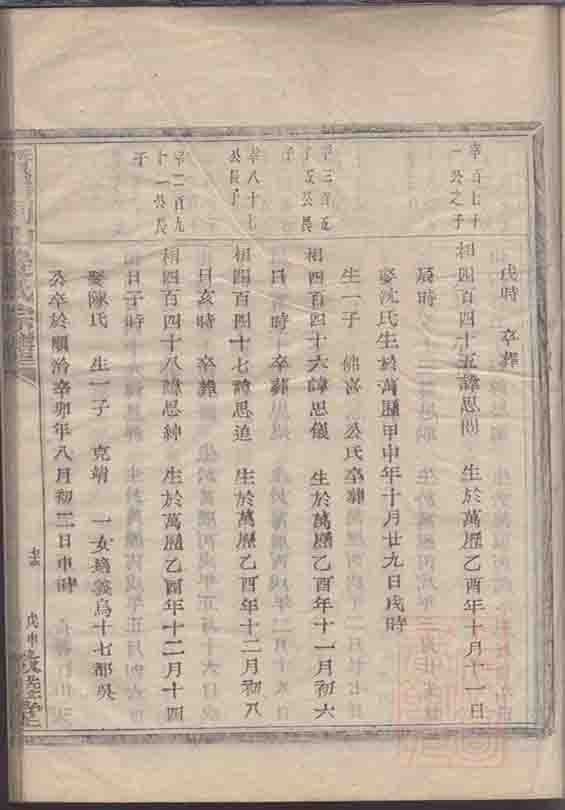 戌時 卒葬
辛百七十一公之子
相四百四十五諱思問 生於萬歷乙酉年十月十一日
辰時
娶沈氏生於萬歷甲申年十月廿九日戌時
生一子 佛喜 公氏卒葬
辛三百五十五公長子
相四百四十六諱思儀 生於萬歷乙酉年十一月初六
日 時 卒葬
辛八十七公長子
相四百四十七諱思進 生於萬歷乙酉年十二月初八
日亥時 卒葬
辛二百九十一公長子
相四百四十八諱思紳 生於萬歷乙酉年十二月十四
日子時
娶陳氏 生一子 克靖 一女適義烏十七都吳
公卒於順治辛卯年八月初二日申時
宗譜
戊申